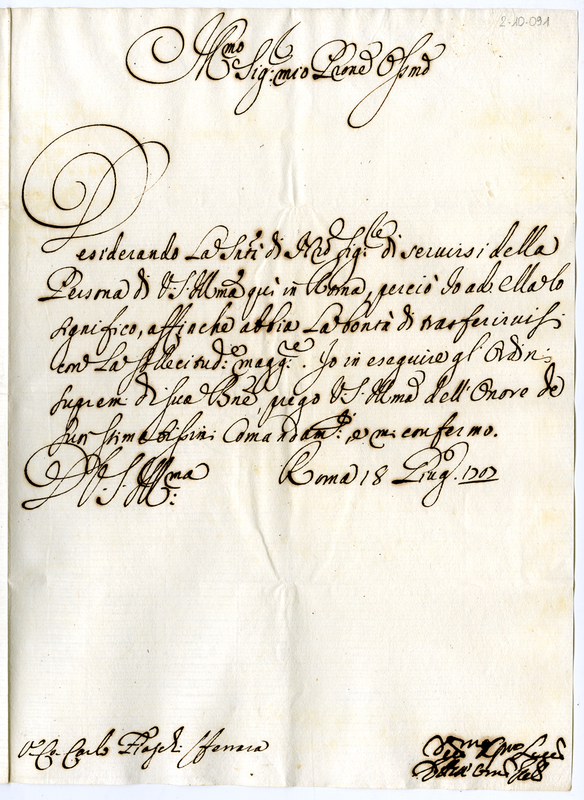 2-10-091
Illmo
Sig: mio Prone Ossmo
Desiderando La Sntà di Nro Sigre di servirsi della
Persona di V.S. Illma quì in Roma, perciò Io ad Ella lo
significo, affinche abbia La bontà di trasferirvisi
con La sollecitude maggre. Io in eseguire gl' Ordini
supremi di sua Bne, prego V.S. Illma dell' Onore de
suoi stimatissimi Comandamti: e mi confermo.
D V.S. Illma: Roma 18 Giugo. 1707
Co: Carlo Flaschi Ferrara